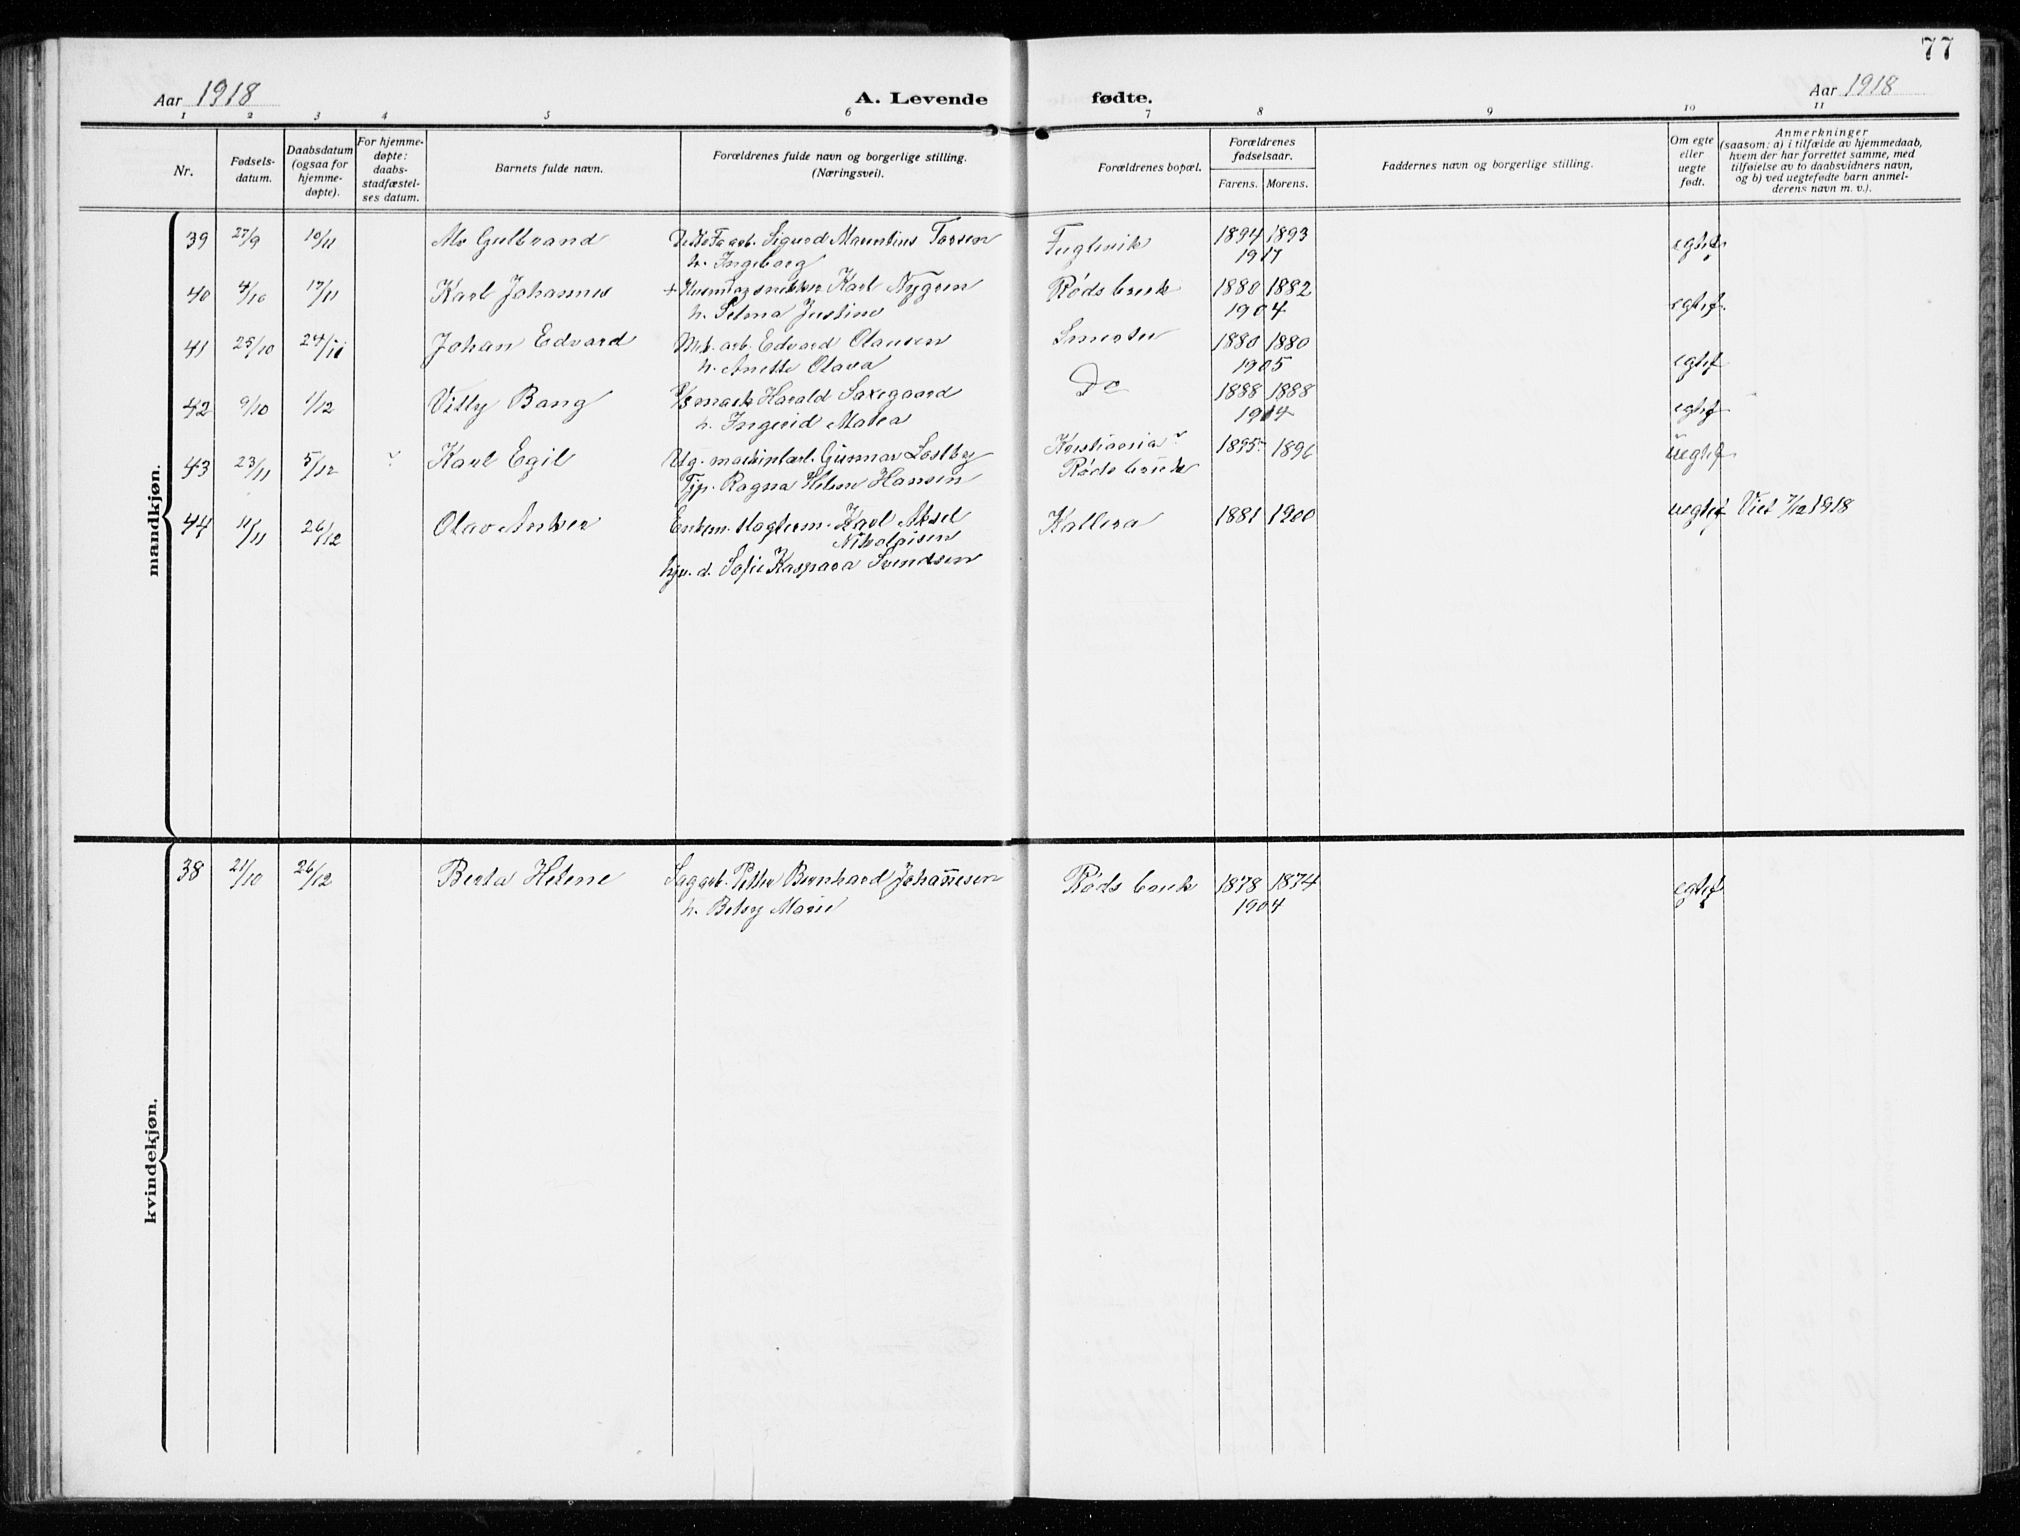 77
Aar 1918
A. Levende fødte.
Aar 1918
1 2 3 4 5 6 7 8 9 10 11
Nr.
Fødsels-
datum.
Daabsdatum
(ogsaa for
hjemme-
døpte).
For hjemme-
døpte:
daabs-
stadfæstel-
ses datum.
Barnets fulde navn.
Forældrenes fulde navn og borgerlige stilling.
(Næringsvei).
Forældrenes bopæl.
Forældrenes
fødselsaar.
Farens. Morens.
Faddernes navn og borgerlige stilling.
Om egte
eller
uegte
født.
Anmerkninger
(saasom: a) i tilfælde av hjemmedaab,
hvem der har forrettet samme, med
tilføielse av to daabsvidners navn,
og b) ved uegtefødte barn anmel-
derens navn m. v.).
mandkjøn.
39 27/9 10/11 Alv Gulbrand Sigurd Mauritius Torsen Fuglevik 1894 1893 egtef.
h. Ingeborg 1917
40 4/10 17/11 Karl Johannes Karl Nygren Røds bruk 1880 1882 egtef.
h. Selma Justine 1904
41 25/10 24/11 Johan Edvard arb. Edvard Olausen 1880 1880 egtef
h. Anette Olava 1905
42 9/10 1/12 Villy Bang Harald Saxegaard Do 1888 1888 egtef
h. Ingerid Matea 1914
43 23/11 5/12 Karl Egil Gunnar Kristiania 1895 1896 uegtef
Ragna Helene Hansen Røds bruk
44 11/11 26/12 Olav Anker Karl Aksel Kallera 1881 1900 uegtef Viet 7/12 1918
Nikolaisen
d. Sofie Kaspara Svendsen
kvindekjøn.
38 21/10 26/12 Berta Helene Sagarb. Petter Bernhard Johannesen Røds bruk 1878 1874 egtef
h. Betsy Marie 1904